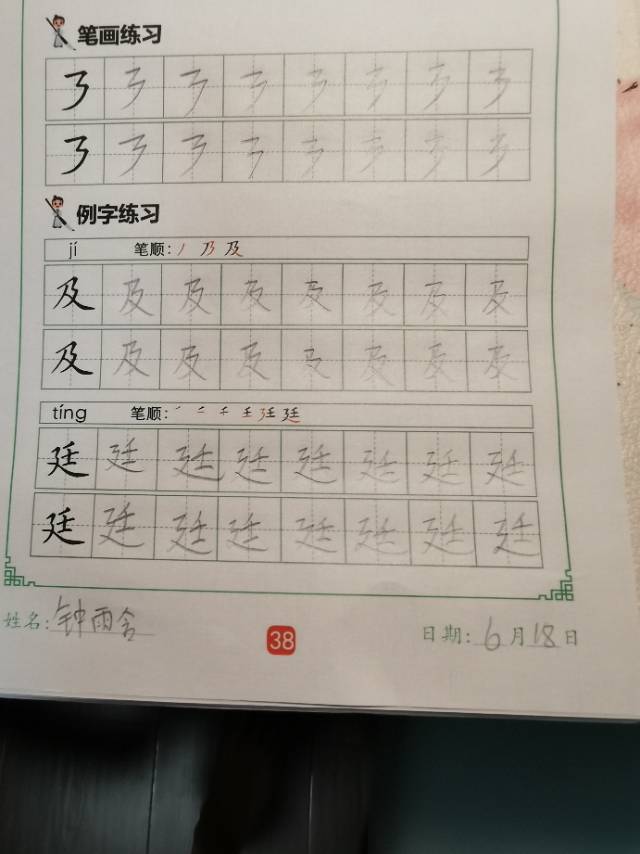 笔画练习
㇋ ㇋ ㇋ ㇋ ㇋ ㇋ ㇋ ㇋
㇋ ㇋ ㇋ ㇋ ㇋ ㇋ ㇋ ㇋
例字练习
jí 笔顺: 丿 乃 及
及 及 及 及 及 及 及 及
及 及 及 及 及 及 及 及
tíng 笔顺:
廷 廷 廷 廷 廷 廷 廷 廷
廷 廷 廷 廷 廷 廷 廷 廷
姓名: 钟雨含 38 日期: 6月18日